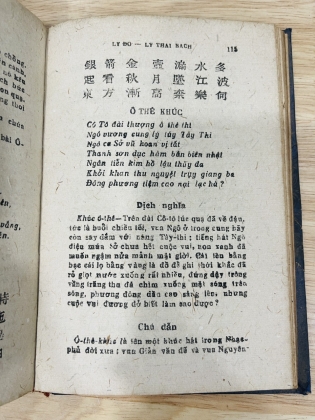 LÝ ĐỖ — LÝ THÁI BẠCH 115
銀箭金壺漏水多
起看秋月墜江波
東方漸高奈樂何
Ô THÊ KHÚC
Cô Tô đài thượng ô thê thì
Ngô vương cung lý túy Tây Thi
Ngô ca Sở vũ hoan vị tất
Thanh sơn dục hàm bán biên nhật
Ngân tiễn kim hồ lậu thủy đa
Khởi khan thu nguyệt trụy giang ba
Đông phương tiệm cao nại lạc hà ?
Dịch nghĩa
Khúc ô-thê — Trên đài Cô-tô lúc quạ đã về đậu,
tức là buổi chiều tối, vua Ngô ở trong cung hãy
còn say đắm với nàng Tây-thi ; tiếng hát Ngô
điệu múa Sở chưa hết cuộc vui, non xanh đã
muốn ngậm nửa mảnh mặt giời. Cái tên bằng
bạc cái lọ bằng vàng là đồ để ghi thời khắc đã
rỏ giọt nước xuống rất nhiều, đứng dậy trông
vầng trăng thu đã chìm xuống mặt sóng trên
sông, phương đông dần cao sáng lên, nhưng
cuộc vui đương dở biết làm sao được ?
Chú dẫn
Ô-thê-khúc là tên một khúc hát trong Nhạc-
phủ đời xưa ; vua Giản văn đế và vua Nguyên